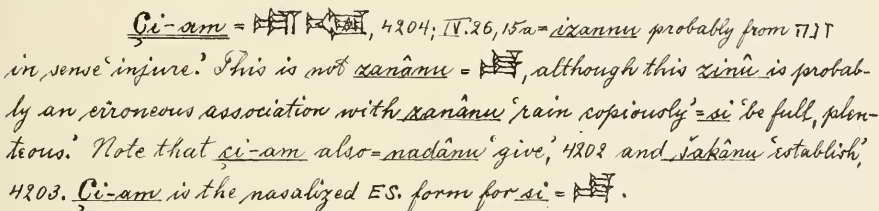 Çi-am = , 4204; IV.26,15a = izannu probably from
in sense 'injure.' This is not zanânu = , although this zinû is probab-
ly an erroneous association with zanânu 'rain copiously' = si 'be full, plen-
teous.' Note that çi-am also = nadânu 'give,' 4202 and šakânu 'establish,'
4203. Çi-am is the nasalized ES. form for si = .